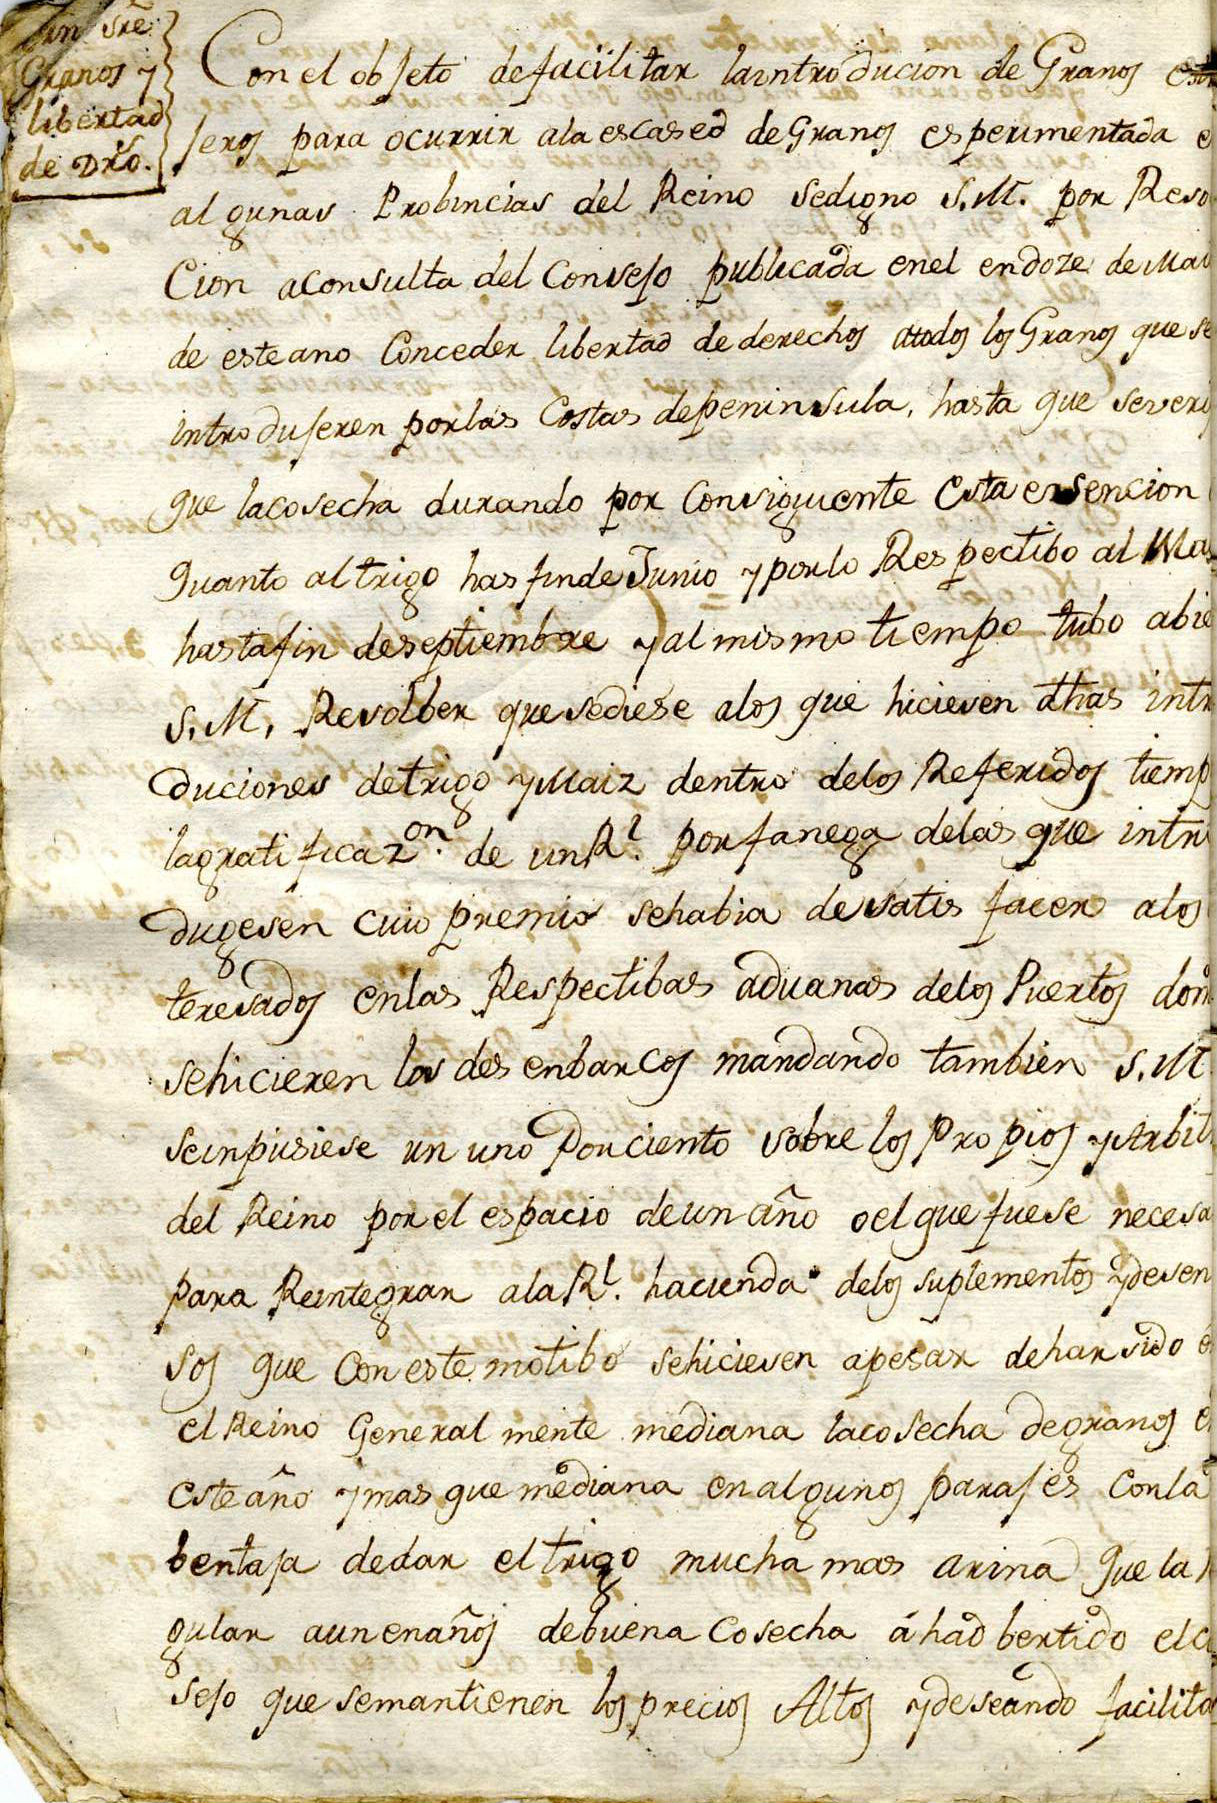 sre
Granos y
libertad
de Dro.
Con el objeto de facilitar la introducion de Granos
jeros para ocurrir a la escased de Granos esperimentada
algunas Probincias del Reino se digno S.M. por Reso
cion a consulta del Consejo publicada en el en doze de Mar
de este ano Conceder libertad de derechos atodos los Granos que se
introdujeren por las Costas de peninsula, hasta que se veri
que la cosecha durando por consiguiente esta ecsencion
quanto al trigo has fin de Junio y por lo Respectibo al Ma
hasta fin de septiembre y al mismo tiempo tubo abie
S.M. Resolber que se diese a los que hiciesen dhas intr
duciones de trigo y Maiz dentro de los Referidos tiemp
la gratificazon. de un Rl. por fanega de las que intr
dugesen cuio premio se habia de satisfacer a los
teresados en las Respectibas aduanas de los Puertos don
se hicieren los desenbarcos mandando tambien S.M.
se inpusiese un uno Por ciento sobre los Propios y Arbit
del Reino por el espacio de un año o el que fuese necesa
para Reintegrar a la Rl. hacienda de los suplementos y desen
sos que con este motibo se hiciesen apesar de har sido
el Reino General mente mediana la cosecha de granos
este año y mas que mediana en algunos parajes con la
bentaja de dar el trigo mucha mas arina que la
gular aun en años de buena Cosecha á had bertido el
sejo que se mantienen los precios Altos y deseando facilita